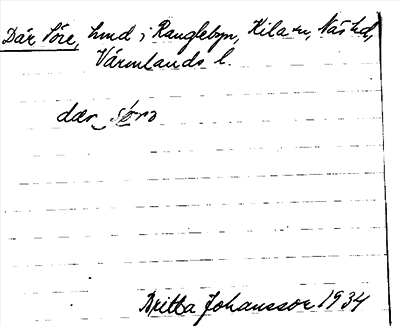 Där Söre, lind i Ranglebyn, Kila sn, Näs hd,
Värmlands l.
dær sørə
Britta Johansson 1934